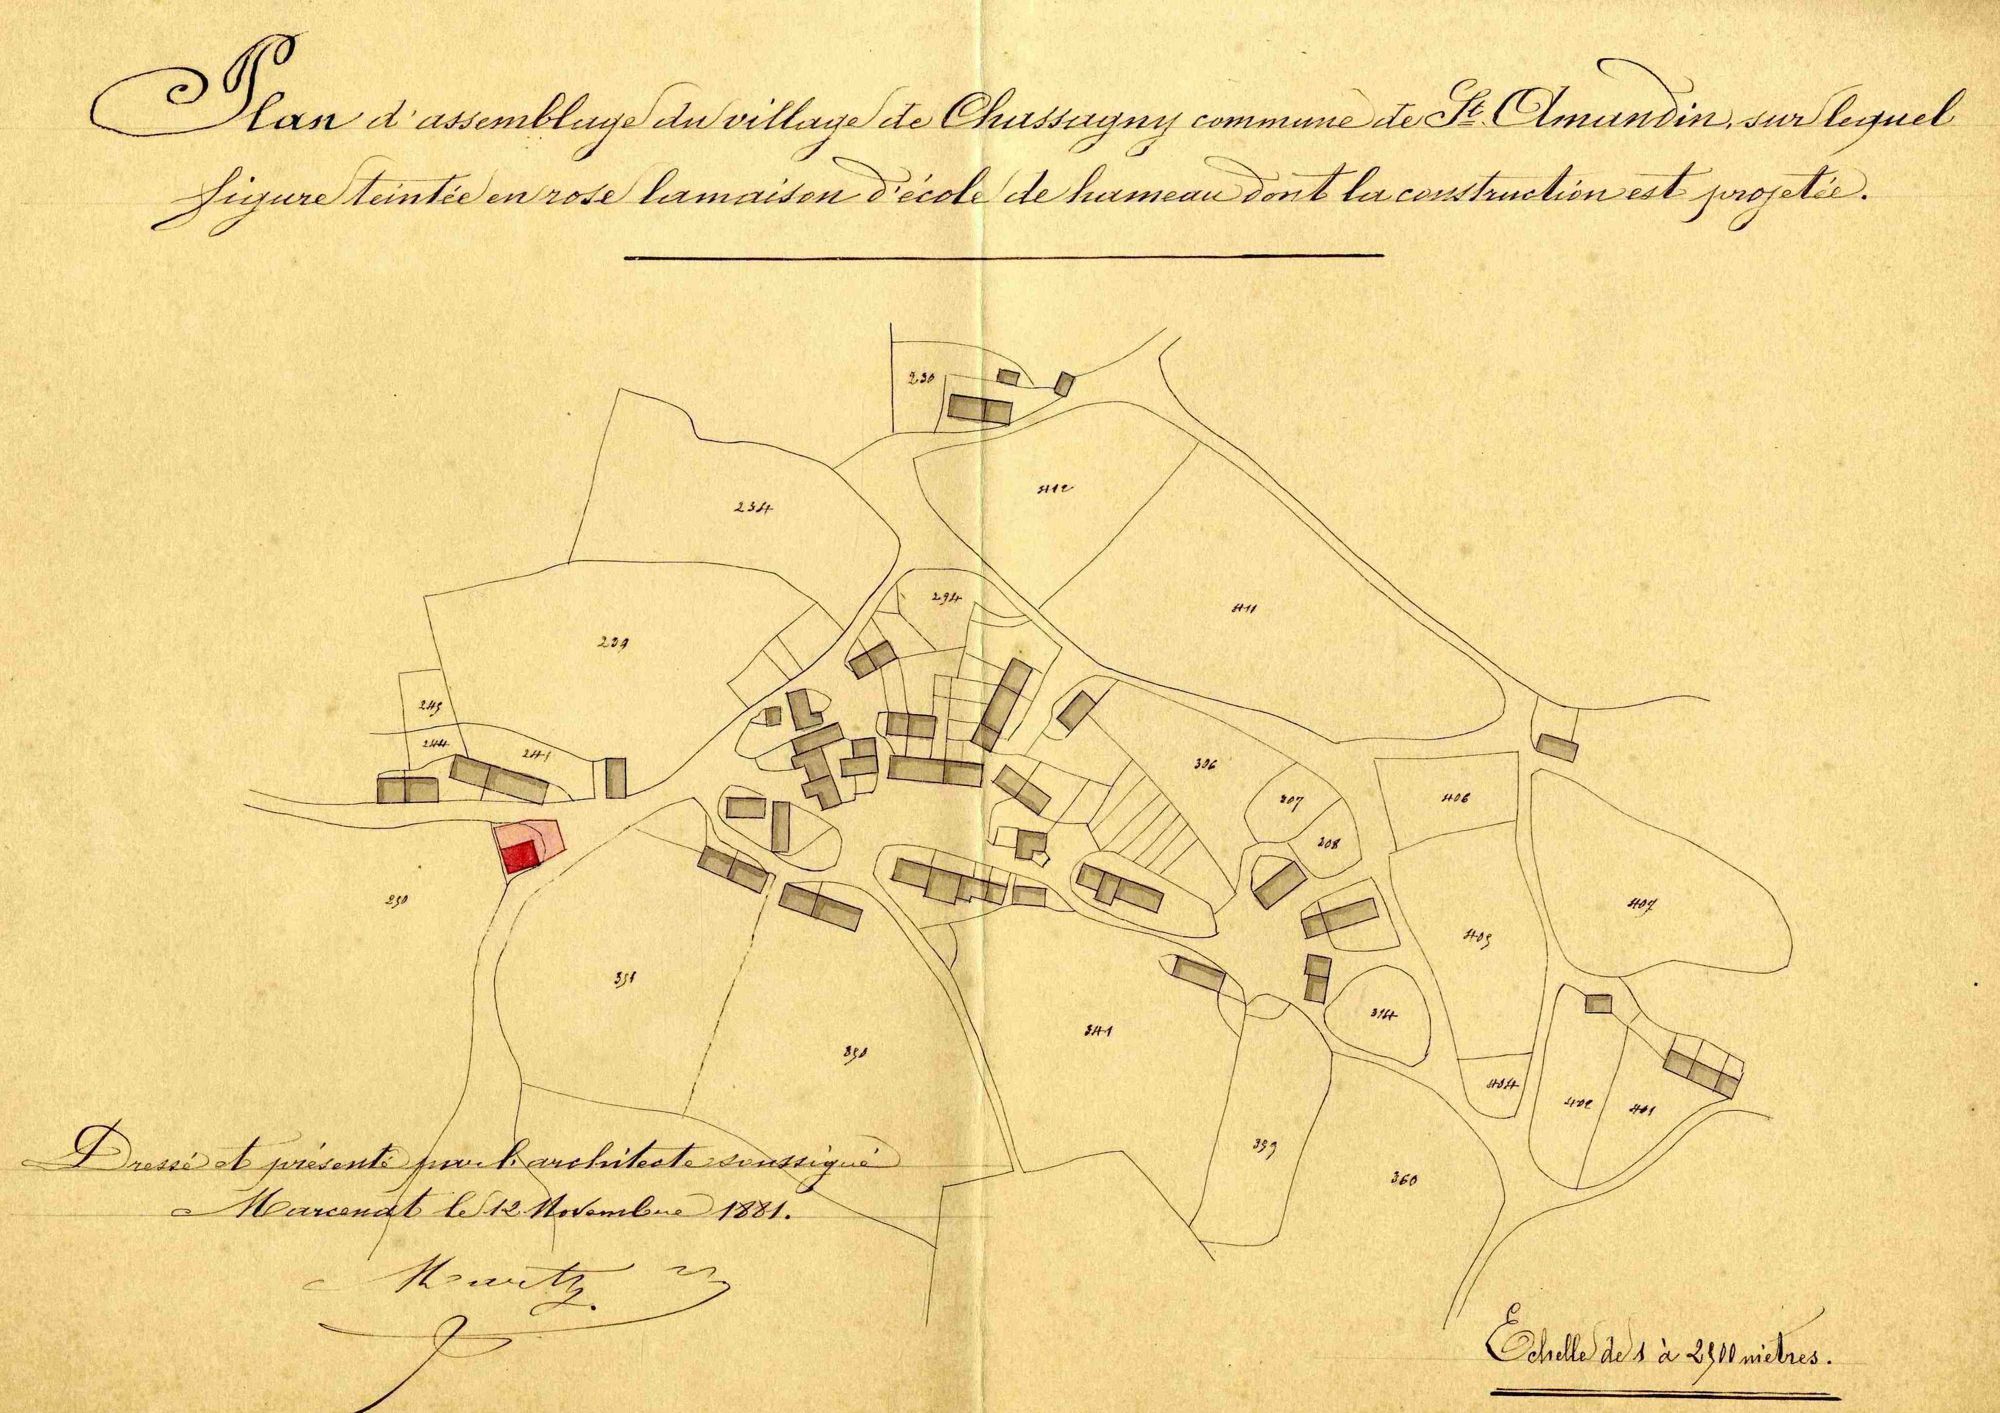 Plan d'assemblage du village de Chassagny commune de St. Amandin, sur lequel
figure teintée en rose la maison d'école de hameau dont la construction est projetée.
230
412
234
294
411
239
245
244
241
306
307
308
406
407
250
405
351
314
341
350
404
402
401
359
360
Dressé et présenté par l'architecte soussigné
Marcenat le 12 Novembre 1881.
Echelle de 1 à 2500 mètres.